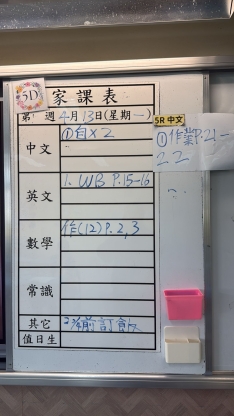 5D
家課表
第 週 4月13日(星期一)
5R 中文
中文
①自X2
①作業P.21-
22
英文
1. WB P.15-16
數學
作(12)P.2,3
常識
其它
前訂
值日生